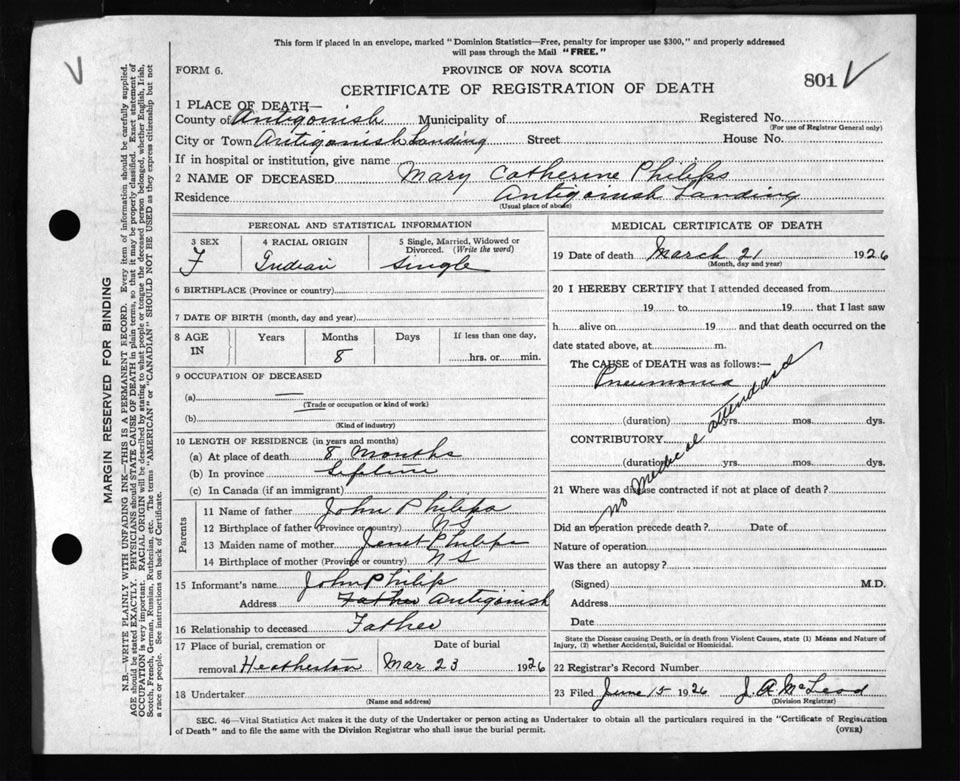 This form if placed in an envelope, marked "Dominion Statistics—Free, penalty for improper use $300," and properly addressed
will pass through the Mail "FREE."
FORM 6.
PROVINCE OF NOVA SCOTIA
801
CERTIFICATE OF REGISTRATION OF DEATH
1 PLACE OF DEATH—
County of Antigonish Municipality of Registered No.
(For use of Registrar General only)
City or Town Antigonish Landing Street House No.
If in hospital or institution, give name
2 NAME OF DECEASED Mary Catherine Philips
Residence Antigonish Landing
(Usual place of abode)
PERSONAL AND STATISTICAL INFORMATION
3 SEX 4 RACIAL ORIGIN 5 Single, Married, Widowed or
Divorced. (Write the word)
F Indian Single
6 BIRTHPLACE (Province or country)
7 DATE OF BIRTH (month, day and year)
8 AGE Years Months Days If less than one day,
IN 8 hrs. or min.
9 OCCUPATION OF DECEASED
(a) —
(Trade or occupation or kind of work)
(b)
(Kind of industry)
10 LENGTH OF RESIDENCE (in years and months)
(a) At place of death 8 Months
(b) In province Lifetime
(c) In Canada (if an immigrant)
Parents
11 Name of father John Philips
12 Birthplace of father (Province or country) NS
13 Maiden name of mother Janet Philips
14 Birthplace of mother (Province or country) NS
15 Informant's name John Philip
Address Father Antigonish
16 Relationship to deceased Father
17 Place of burial, cremation or Date of burial
removal Heatherton Mar 23 1926
18 Undertaker
(Name and address)
MEDICAL CERTIFICATE OF DEATH
19 Date of death March 21 1926
(Month, day and year)
20 I HEREBY CERTIFY that I attended deceased from
19 to 19 that I last saw
h alive on 19 and that death occurred on the
date stated above, at m.
The CAUSE of DEATH was as follows:—
Pneumonia
(duration) yrs. mos. dys.
CONTRIBUTORY
(duration) yrs. mos. dys.
no medical attendard
21 Where was disease contracted if not at place of death?
Did an operation precede death? Date of
Nature of operation
Was there an autopsy?
(Signed) M.D.
Address
Date
State the Disease causing Death, or in death from Violent Causes, state (1) Means and Nature of
Injury, (2) whether Accidental, Suicidal or Homicidal.
22 Registrar's Record Number
23 Filed June 15 1926 J. A. McLeod
(Division Registrar)
SEC. 46—Vital Statistics Act makes it the duty of the Undertaker or person acting as Undertaker to obtain all the particulars required in the "Certificate of Registration
of Death" and to file the same with the Division Registrar who shall issue the burial permit. (OVER)
MARGIN RESERVED FOR BINDING
N.B.—WRITE PLAINLY WITH UNFADING INK—THIS IS A PERMANENT RECORD. Every item of information should be carefully supplied.
AGE should be stated EXACTLY. PHYSICIANS should STATE CAUSE OF DEATH in plain terms, so that it may be properly classified. Exact statement of
OCCUPATION is very important. RACIAL ORIGIN will be described by stating to what people or tongue the deceased person belonged, whether English, Irish,
Scotch, French, German, Russian, Ruthenian, etc. The terms "AMERICAN" or "CANADIAN" SHOULD NOT BE USED as they express citizenship but not
a race or people. See instructions on back of Certificate.